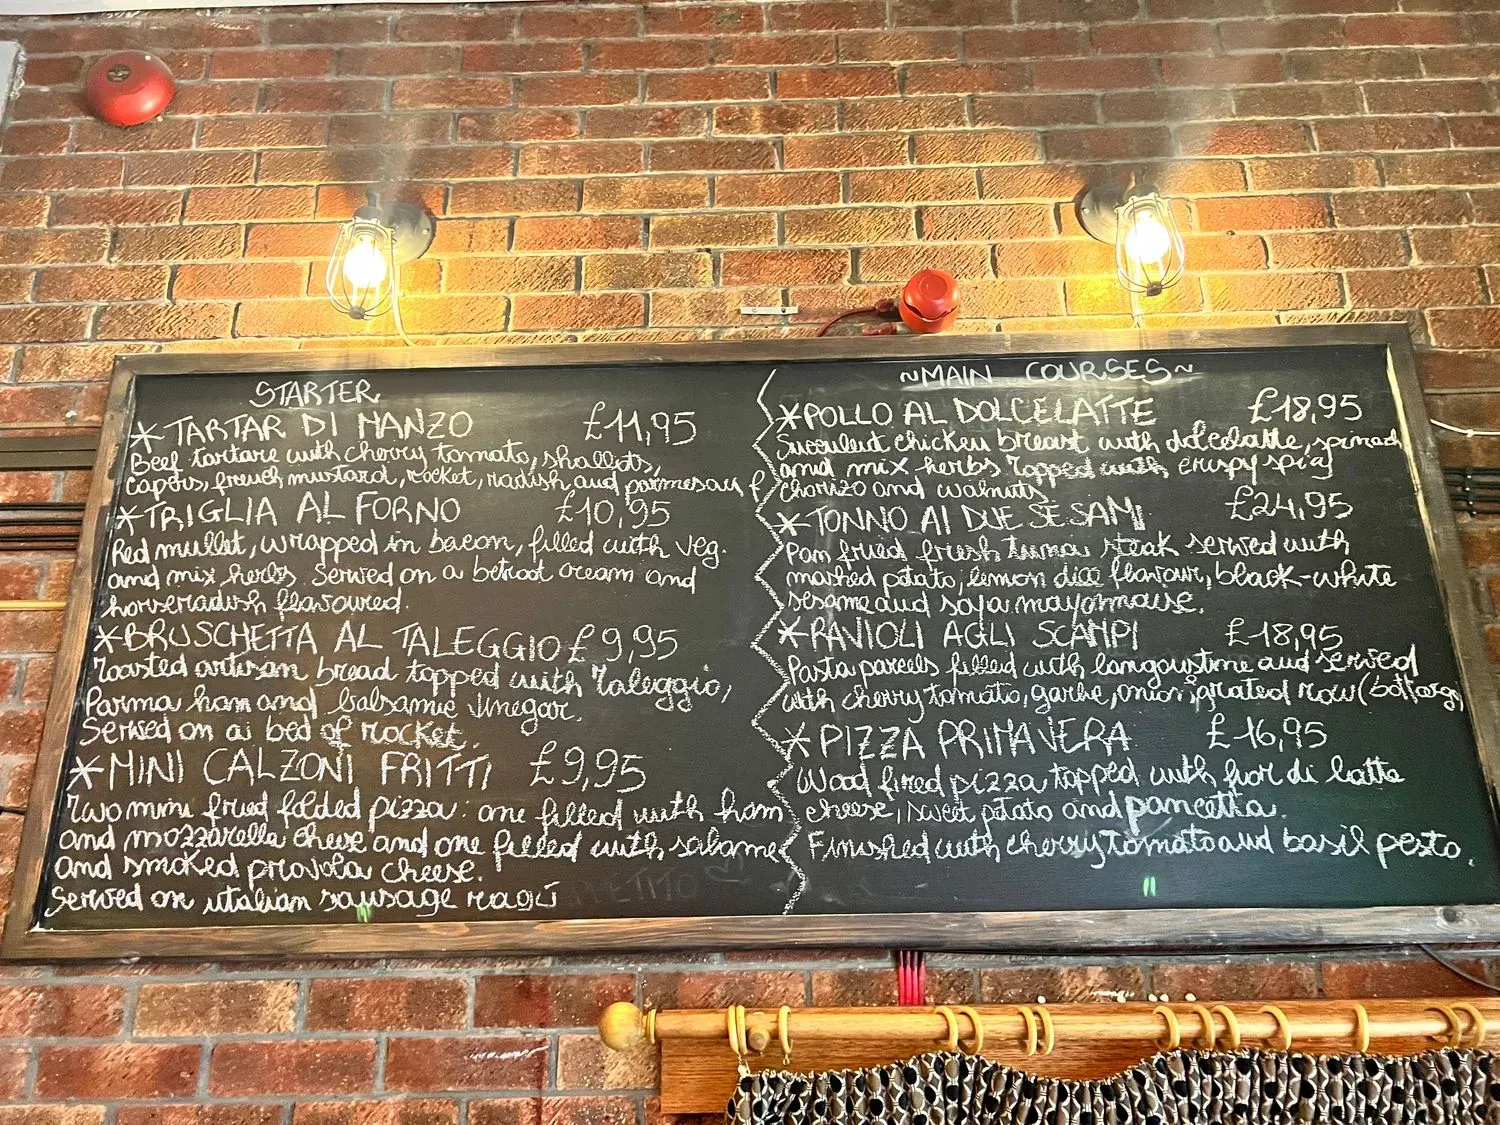 STARTER
*TARTAR DI MANZO £11,95
Beef tartare with cherry tomato, shallots,
capers, french mustard, rocket, radish and parmesan
*TRIGLIA AL FORNO £10,95
Red mullet, wrapped in bacon, filled with veg.
and mix herbs served on a betroot cream and
horseradish flavoured.
*BRUSCHETTA AL TALEGGIO £9,95
Toasted artisan bread topped with Taleggio,
Parma ham and balsamic vinegar.
Served on a bed of rocket.
*MINI CALZONI FRITTI £9,95
Two mini fried folded pizza: one filled with ham
and mozzarella cheese and one filled with salame
and smoked provola cheese.
Served on italian sausage ragù
~MAIN COURSES~
*POLLO AL DOLCELATTE £18,95
Succulent chicken breast with dolcelatte, spinach
and mix herbs Topped with crispy
chorizo and walnuts
*TONNO AI DUE SESAMI £24,95
Pan fried fresh tuna steak served with
mashed potato, lemon flavour, black-white
sesame and soya mayonnaise.
*RAVIOLI AGLI SCAMPI £18,95
Pasta parcels filled with langoustine and served
with cherry tomato, garlic, onion, grated row (bottarga)
*PIZZA PRIMAVERA £16,95
Wood fired pizza topped with fior di latte
cheese, sweet potato and pancetta.
Finished with cherry tomato and basil pesto.